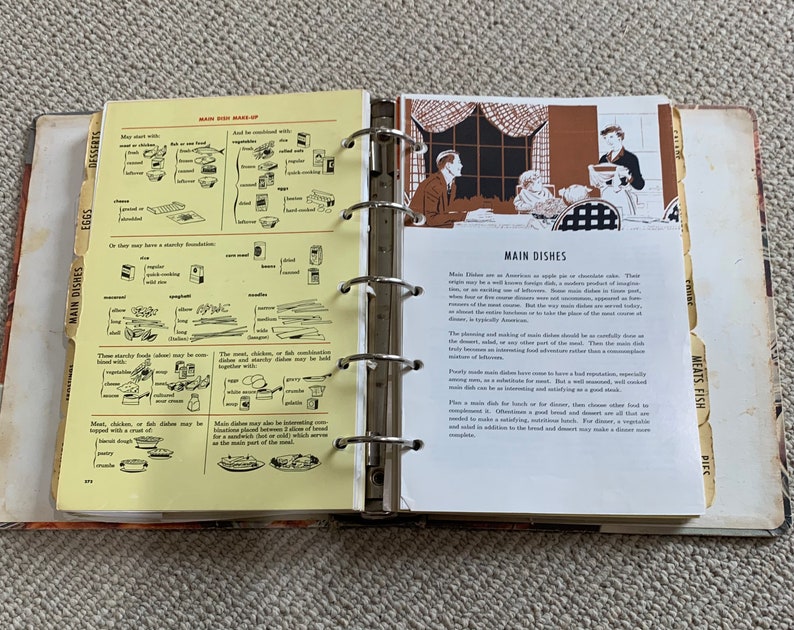 DESSERTS
EGGS
MAIN DISHES
MAIN DISH MAKE-UP
May start with:
meat or chicken
fresh
canned
leftover
fish or sea food
fresh
frozen
canned
leftover
cheese
grated or
shredded
And be combined with:
vegetables
fresh
frozen
canned
dried
leftover
rice
rolled oats
regular
quick-cooking
eggs
beaten
hard-cooked
Or they may have a starchy foundation:
rice
regular
quick-cooking
wild rice
corn meal
beans
dried
canned
macaroni
elbow
long
shell
spaghetti
elbow
long
long
(Italian)
noodles
narrow
medium
wide
(lasagne)
These starchy foods (alone) may be com-
bined with:
vegetables
cheese
sauces
soup
meat
cultured
sour cream
The meat, chicken, or fish combination
dishes and starchy dishes may be held
together with:
eggs
white sauce
soup
gravy
crumbs
gelatin
Meat, chicken, or fish dishes may be
topped with a crust of:
biscuit dough
pastry
crumbs
Main dishes may also be interesting com-
binations placed between 2 slices of bread
for a sandwich (hot or cold) which serves
as the main part of the meal.
272
MAIN DISHES
Main Dishes are as American as apple pie or chocolate cake. Their
origin may be a well known foreign dish, a modern product of imagina-
tion, or an exciting use of leftovers. Some main dishes in times past,
when four or five course dinners were not uncommon, appeared as fore-
runners of the meat course. But the way main dishes are served today,
as almost the entire luncheon or to take the place of the meat course at
dinner, is typically American.
The planning and making of main dishes should be as carefully done as
the dessert, salad, or any other part of the meal. Then the main dish
truly becomes an interesting food adventure rather than a commonplace
mixture of leftovers.
Poorly made main dishes have come to have a bad reputation, especially
among men, as a substitute for meat. But a well seasoned, well cooked
main dish can be as interesting and satisfying as a good steak.
Plan a main dish for lunch or for dinner, then choose other food to
complement it. Oftentimes a good bread and dessert are all that are
needed to make a satisfying, nutritious lunch. For dinner, a vegetable
and salad in addition to the bread and dessert may make a dinner more
complete.
MEATS, FISH
PIES